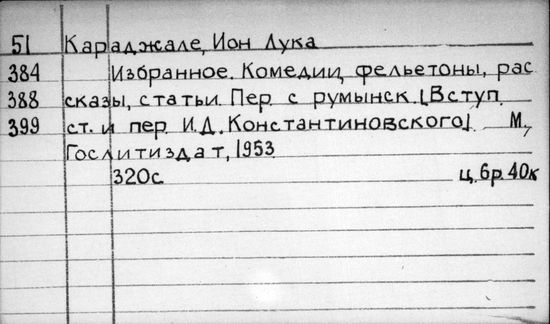 51 Караджале, Ион Лука
384 Избранное. Комедии, фельетоны, рас
388 сказы, статьи. Пер. с румынск. [Вступ.
399 ст. и пер. И.Д. Константиновского]. М,
Гослитиздат, 1953
320с ц. 6р. 40к